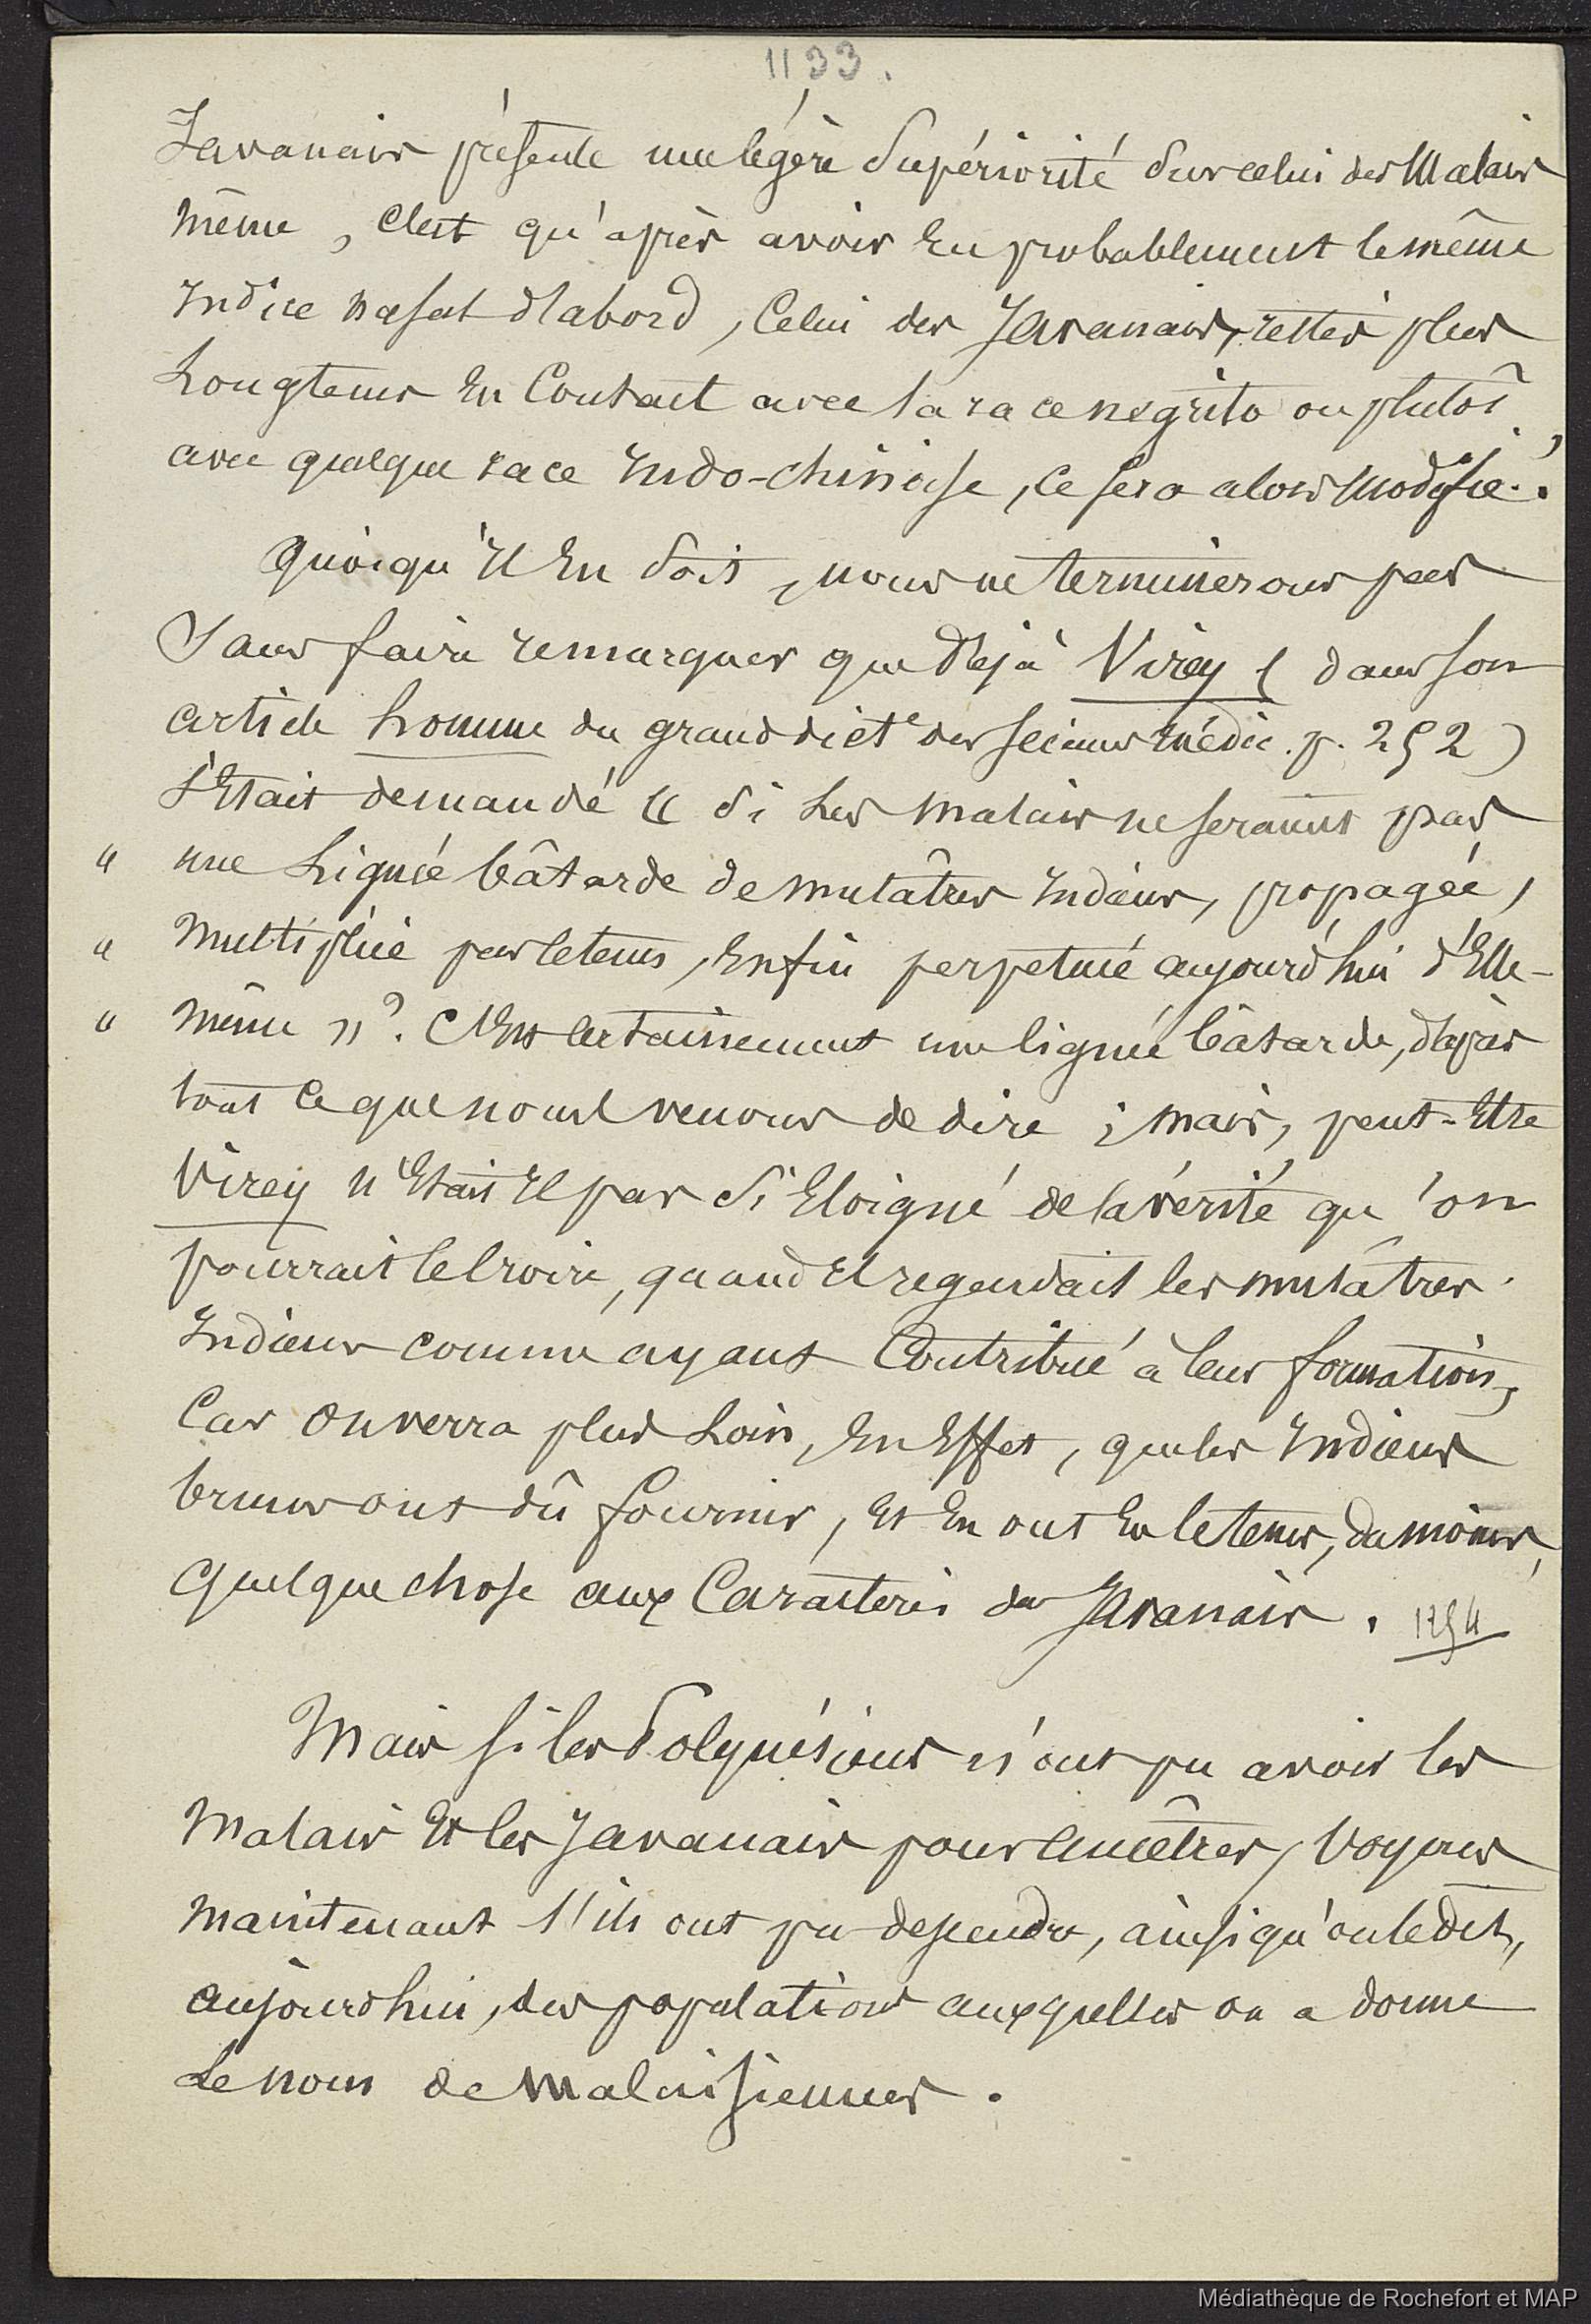 1133.
Javanais présente une légère supériorité sur celui des Malais
même, c'est qu'après avoir eu probablement le même
indice nasal d'abord, celui des Javanais, restés plus
longtems en contact avec la race negrito ou plutôt
avec quelque race indo-chinoise, se sera alors modifié.
Quoiqu'il en soit, nous ne terminerons pas
sans faire remarquer que déjà Virey (dans son
article homme du grand dict.e des sciences médic. p. 252)
s'était demandé « si les malais ne seraient pas
" une lignée bâtarde de mulâtres indiens, propagée,
" multipliée par le tems, enfin perpetuée aujourd'hui d'elle-
" même »? C'est certainement une lignée bâtarde, d'après
tout ce que nous venons de dire ; mais, peut-être
Virey n'était il pas si éloigné de la vérité qu'on
pourrait le croire, quand il regardait les mulâtres
indiens comme ayant contribué à leur formation,
car on verra plus loin, en effet, que les indiens
bruns ont dû fournir, et en ont eu le tems, du moins,
quelque chose aux caractères des Javanais. 1254
Mais si les Polynésiens n'ont pu avoir les
Malais et les Javanais pour ancêtres, voyons
maintenant s'ils ont pu descendre, ainsi qu'on le dit,
aujourd'hui, des populations auxquelles on a donné
le nom de malaisiennes.
Médiathèque de Rochefort et MAP